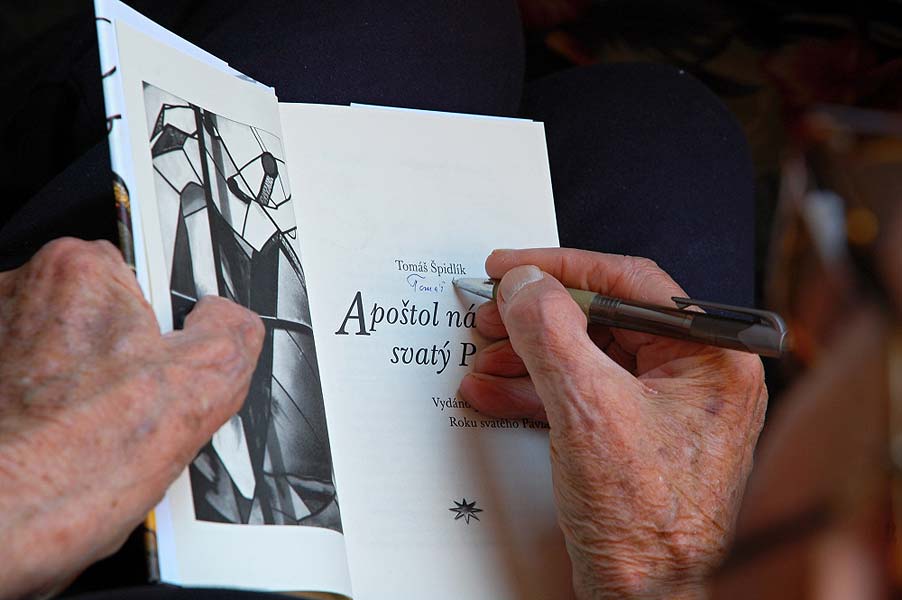 Tomáš Špidlík
Tomáš
Apoštol ná
svatý P
Vydáno
Roku svatého Pavla